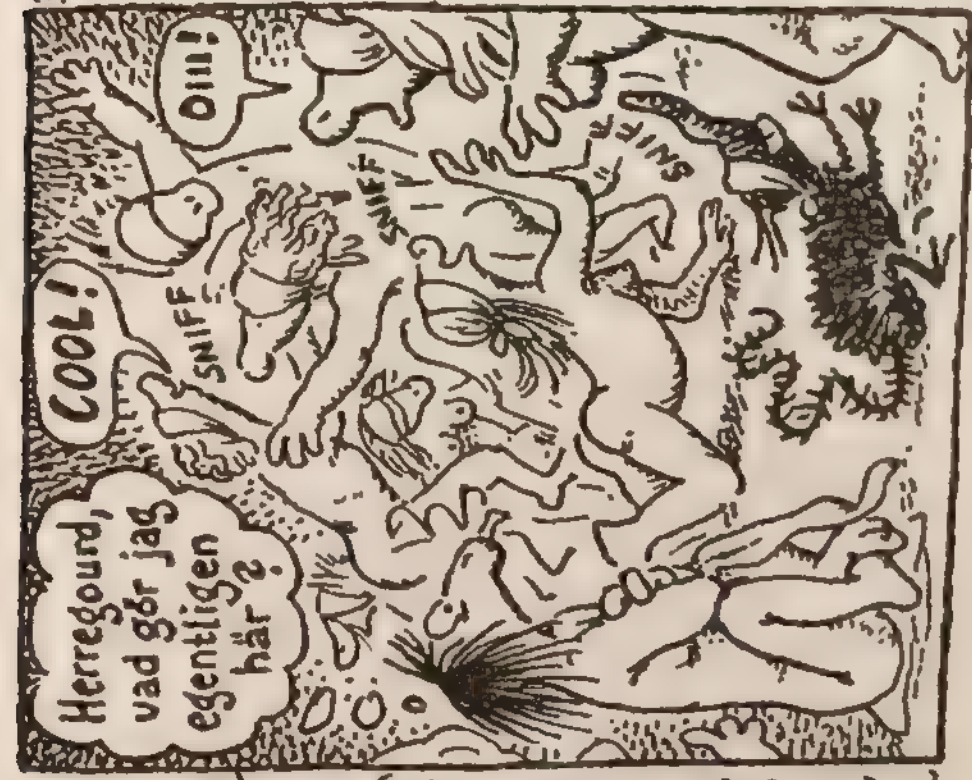 Herregourd,
vad gör jag
egentligen
här?
COOL!
OIII!
SNIFF
SNIFF
SNIFF